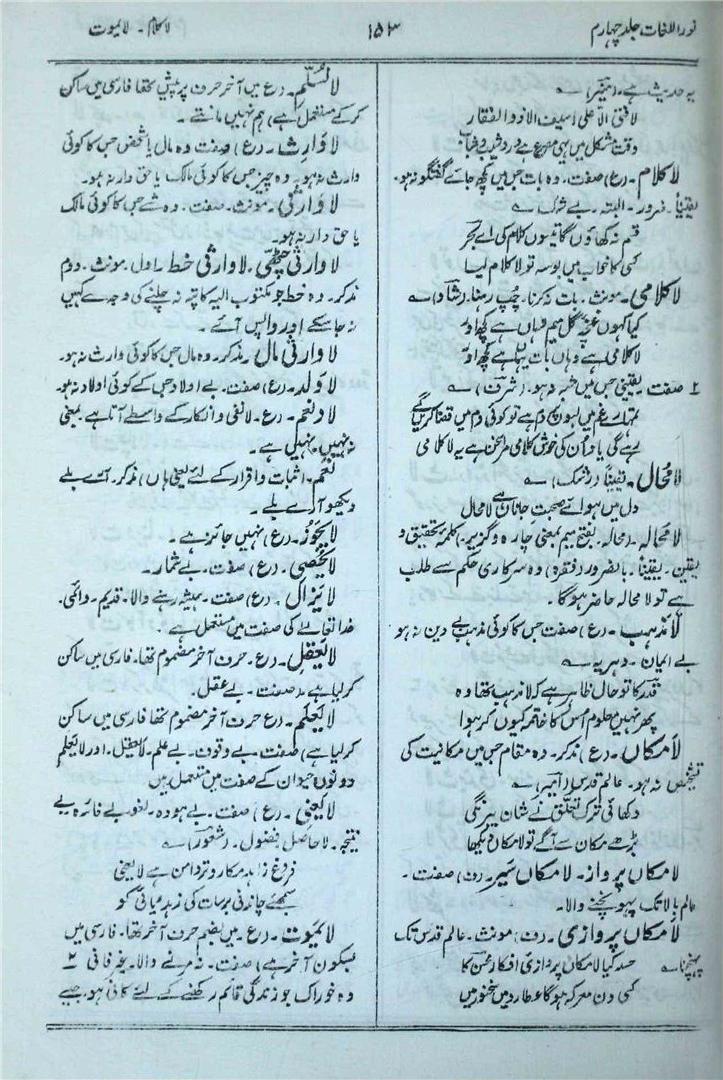 نور اللغات، جلد چہارم
۱۵۳
لاکلام۔ لایموت
یہ حدیث ہے۔ (منیرؔ) ؎
لافتیٰ الا علی لاسیف الا ذوالفقار
وقت مشکل میں یہی مصرع ہے ورد شیخ و شاب
لاکلام۔ (ع) صفت۔ وہ بات جس میں کچھ جائے گفتگو نہ ہو۔
یقیناً۔ ضرور۔ البتہ۔ بے شک ؎
قسم نہ کھاؤں گا تیسوں کلام کی اے بحرؔ
کسی کا خواب میں بوسہ تو لاکلام لیا
لاکلامی۔ مونث۔ بات نہ کرنا۔ چُپ رہنا۔ (رشادؔ) ؎
کیا کہوں غنچہ و گل میں وہاں ہے کچھ اور
لاکلامی ہے وہاں بات یہاں ہے کچھ اور
۲ صفت یقینی جس میں شبہ نہ ہو۔ (شرفؔ) ؎
تمہارے غم میں لبوں پہ دم ہے تو کوئی دم میں قضا کریں گے
رہے گی یاد اُن کی خوش کلامی مر سخن ہے یہ لاکلامی
لامحال۔ یقیناً (رشکؔ) ؎
دل میں ہوائے صحبت جاناں ہے لامحال
لامحالہ۔ (محالہ۔ بفتح میم بمعنی چارہ و گزیر) کلمہ تحقیق و
یقین۔ یقیناً۔ بالضرور (فقرہ) وہ سرکاری حکم سے طلب
ہے تو لامحالہ حاضر ہوگا۔
لامذہب۔ (ع) صفت جس کا کوئی مذہب بے دین نہ ہو
بے ایمان۔ دہریہ ؎
قدرؔ کا تو حال ظاہر ہے کہ لامذہب تھا وہ
پھر نہیں معلوم اُس کا خاتمہ کیوں کر ہوا
لامکاں۔ (ع) مذکر۔ وہ مقام جس میں مکانیت کی
تشخیص نہ ہو۔ عالم قدس (امیرؔ) ؎
دکھائی ترک تعلق نے شان بیرنگی
بڑھے مکان سے آگے تو لامکاں دیکھا
لامکاں پرواز۔ لامکاں سیر۔ (ف) صفت۔
عالم بالا تک پہونچنے والا۔
لامکاں پروازی۔ (ف) مونث۔ عالم قدس تک
پہنچنا ؎ حسد کیا لامکاں پروازی افکار محسنؔ کا
کسی دن معرکہ ہوگا عطارد میں سخنور میں
لانُسَلِّم۔ (ع) میں آخر حرف پر پیش تھا فارسی میں ساکن
کر کے مستعمل ہے) ہم نہیں مانتے۔
لاوارث۔ (ع) صفت وہ مال یا شخص جس کا کوئی
وارث نہ ہو۔ وہ چیز جس کا کوئی مالک یا حق دار نہ ہو۔
لاوارثی۔ مونث۔ صفت۔ وہ شے جس کا کوئی مالک
یا حق دار نہ ہو۔
لاوارثی چٹھی۔ لاوارثی خط۔ اول۔ مونث۔ دوم
مذکر۔ وہ خط جو مکتوب الیہ کا پتہ نہ چلنے کی وجہ سے کہیں
نہ جا سکے اور واپس آئے۔
لاوارثی مال۔ مذکر۔ وہ مال جس کا کوئی وارث نہ ہو۔
لاولد۔ (ع) صفت۔ بے اولاد جس کے کوئی اولاد نہ ہو۔
لاونعم۔ (ع)۔ لا نفی و انکار کے واسطے آتا ہے۔ بمعنی
نہ نہیں نہیں ہے۔
نعم۔ اثبات و اقرار کے لئے یعنی ہاں) مذکر۔ آرے بلے
دیکھو آرے بلے۔
لایجوز۔ (ع) نہیں جائز ہے۔
لایحصیٰ۔ (ع) صفت۔ بے شمار۔
لایزال۔ (ع) صفت۔ ہمیشہ رہنے والا۔ قدیم۔ دائمی۔
خدا تعالےٰ کی صفت میں مستعمل ہے۔
لایعقل۔ (ع۔ حرف آخر مضموم تھا۔ فارسی میں ساکن
کر لیا ہے) صفت۔ بے عقل۔
لایعلم۔ (ع حرف آخر مضموم تھا فارسی میں ساکن
کر لیا ہے) صفت۔ بے وقوف۔ بے علم۔ لایعقل۔ اور لایعلم
دونوں حیوان کے صفت میں مستعمل ہیں۔
لایعنی۔ (ع) صفت۔ بے ہودہ۔ لغو۔ بے فائدہ۔ بے
نتیجہ۔ لاحاصل۔ فضول۔ (شعورؔ) ؎
فروغ زاہد مکار و تر دامن ہے لایعنی
سمجھئے چاندنی برسات کی زہد ریائی کو
لایموت۔ (ع۔ میں بضم حرف آخر تھا۔ فارسی میں
بسکون آخر ہے) صفت۔ نہ مرنے والا۔ غیر فانی ۲
وہ خوراک جو زندگی قائم رکھنے کے لئے کافی ہو۔ جیسے